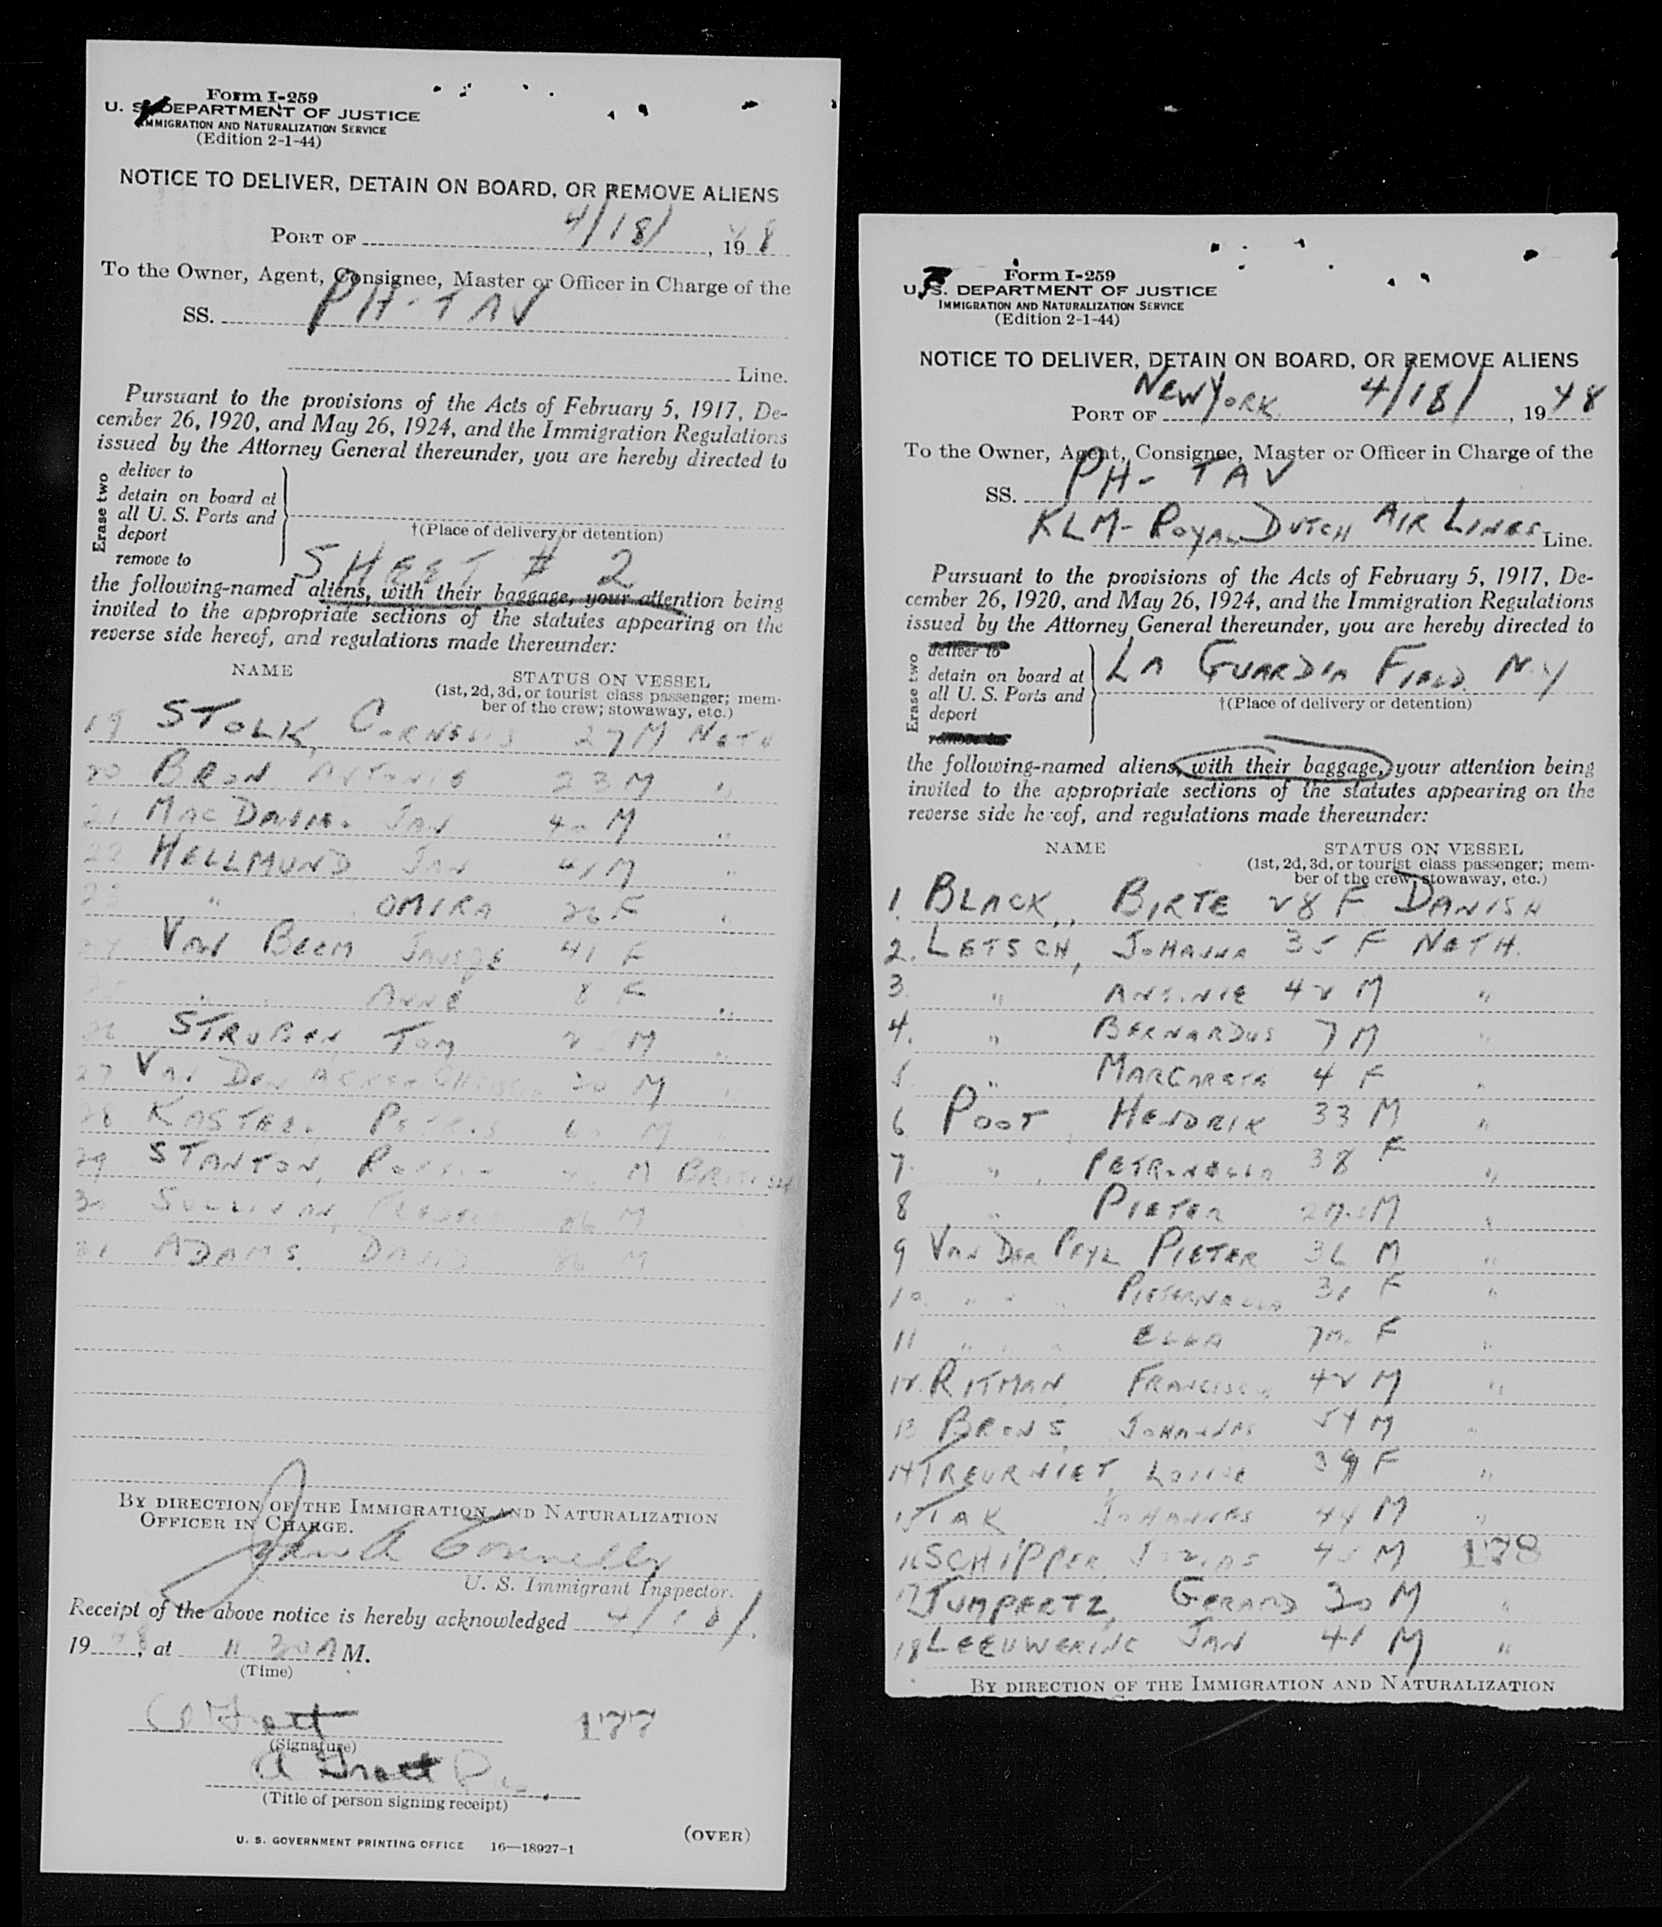 Form I-259
U. S. DEPARTMENT OF JUSTICE
IMMIGRATION AND NATURALIZATION SERVICE
(Edition 2-1-44)
NOTICE TO DELIVER, DETAIN ON BOARD, OR REMOVE ALIENS
PORT OF 4/18/, 1948
To the Owner, Agent, Consignee, Master or Officer in Charge of the
SS. PH-TAV
Line.
Pursuant to the provisions of the Acts of February 5, 1917, De-
cember 26, 1920, and May 26, 1924, and the Immigration Regulations
issued by the Attorney General thereunder, you are hereby directed to
Erase two
deliver to
detain on board at
all U. S. Ports and
deport
remove to
†(Place of delivery or detention)
SHEET # 2
the following-named aliens, with their baggage, your attention being
invited to the appropriate sections of the statutes appearing on the
reverse side hereof, and regulations made thereunder:
NAME
STATUS ON VESSEL
(1st, 2d, 3d, or tourist class passenger; mem-
ber of the crew; stowaway, etc.)
19 STOLK, CORNELIS 27 M NETH
20 BRON ANTONIE 23 M "
21 MAC DANIEL JAN 40 M "
22 HELLMUND JAN 41 M "
23 " OMIRA 26 F "
24 VAN BEEM 41 F
25 " " ANNE 8 F "
26 STRUBEN TOM M "
27 VAN DEN 30 M "
28 M "
29 STANTON, M BRITISH
30 SULLIVAN, 26 M
31 ADAMS, DAVID 26 M
BY DIRECTION OF THE IMMIGRATION AND NATURALIZATION
OFFICER IN CHARGE.
John A Connelly
U. S. Immigrant Inspector.
Receipt of the above notice is hereby acknowledged 4/18/,
1948, at 11 30 A M.
(Time)
177
(Signature)
(Title of person signing receipt)
U. S. GOVERNMENT PRINTING OFFICE 16—18927-1
(OVER)
Form I-259
U. S. DEPARTMENT OF JUSTICE
IMMIGRATION AND NATURALIZATION SERVICE
(Edition 2-1-44)
NOTICE TO DELIVER, DETAIN ON BOARD, OR REMOVE ALIENS
PORT OF NEW YORK 4/18/, 1948
To the Owner, Agent, Consignee, Master or Officer in Charge of the
SS. PH-TAV
KLM-ROYAL DUTCH AIR LINES Line.
Pursuant to the provisions of the Acts of February 5, 1917, De-
cember 26, 1920, and May 26, 1924, and the Immigration Regulations
issued by the Attorney General thereunder, you are hereby directed to
Erase two
deliver to
detain on board at
all U. S. Ports and
deport
remove to
LA GUARDIA FIELD N.Y
†(Place of delivery or detention)
the following-named aliens, with their baggage, your attention being
invited to the appropriate sections of the statutes appearing on the
reverse side hereof, and regulations made thereunder:
NAME
STATUS ON VESSEL
(1st, 2d, 3d, or tourist class passenger; mem-
ber of the crew; stowaway, etc.)
1. BLACK, BIRTE 28 F DANISH
2. LETSCH, JOHANNA 35 F NETH.
3. " 42 M "
4. " BERNARDUS 7 M "
5 " MARGARETA 4 F "
6 POOT, HENDRIK 33 M "
7. " PETRONELLA 38 F "
8 " PIETER M "
9 VAN DER PEYL PIETER 36 M "
10 " " " PIETERNELLA 31 F "
11 " " " ELLA 7m. F "
12. RITMAN FRANCISCUS 42 M "
13 BRONS, JOHANNES 54 M "
14 TREURNIET, LOUISE 39 F "
15 TAK JOHANNES 44 M "
16 SCHIPPER, 45 M 178
17 JUMPERTZ, GERARD 30 M "
18 LEEUWERINC JAN 41 M "
BY DIRECTION OF THE IMMIGRATION AND NATURALIZATION